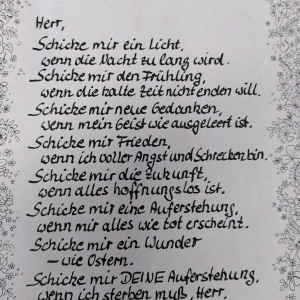 Herr,
Schicke mir ein Licht,
wenn die Nacht zu lang wird.
Schicke mir den Frühling,
wenn die kalte Zeit nicht enden will.
Schicke mir neue Gedanken,
wenn mein Geist wie ausgeleert ist.
Schicke mir Frieden,
wenn ich voller Angst und Schrecken bin.
Schicke mir die Zukunft,
wenn alles hoffnungslos ist.
Schicke mir eine Auferstehung,
wenn mir alles wie tot erscheint.
Schicke mir ein Wunder
– wie Ostern.
Schicke mir DEINE Auferstehung,
wenn ich sterben muß, Herr.